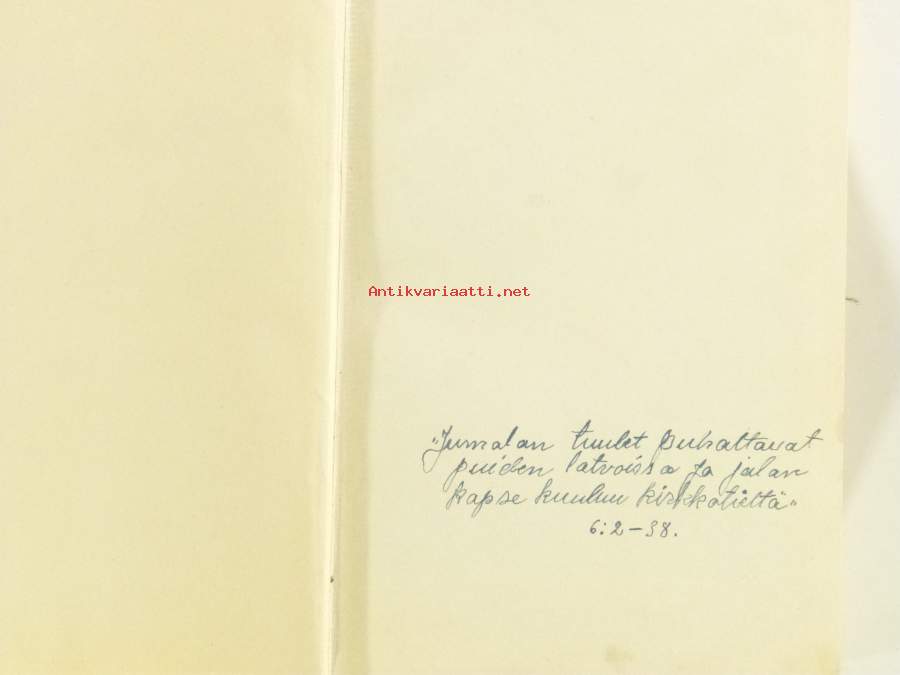 Antikvariaatti.net
"Jumalan tuulet puhaltavat
puiden latvoissa ja jalan
kapse kuuluu kirkkotieltä"
6:2-38.